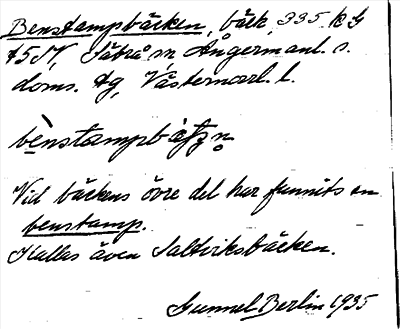 Benstampbäcken, bäck, 335 kG
45M, Säbrå sn, Ångermanl. s.
doms. hg, Västernorrl. l.
benstampbätsn
Vid bäckens övre del har funnits en
benstamp.
Kallas även Saltviksbäcken.
Gunnel Berlin 1935